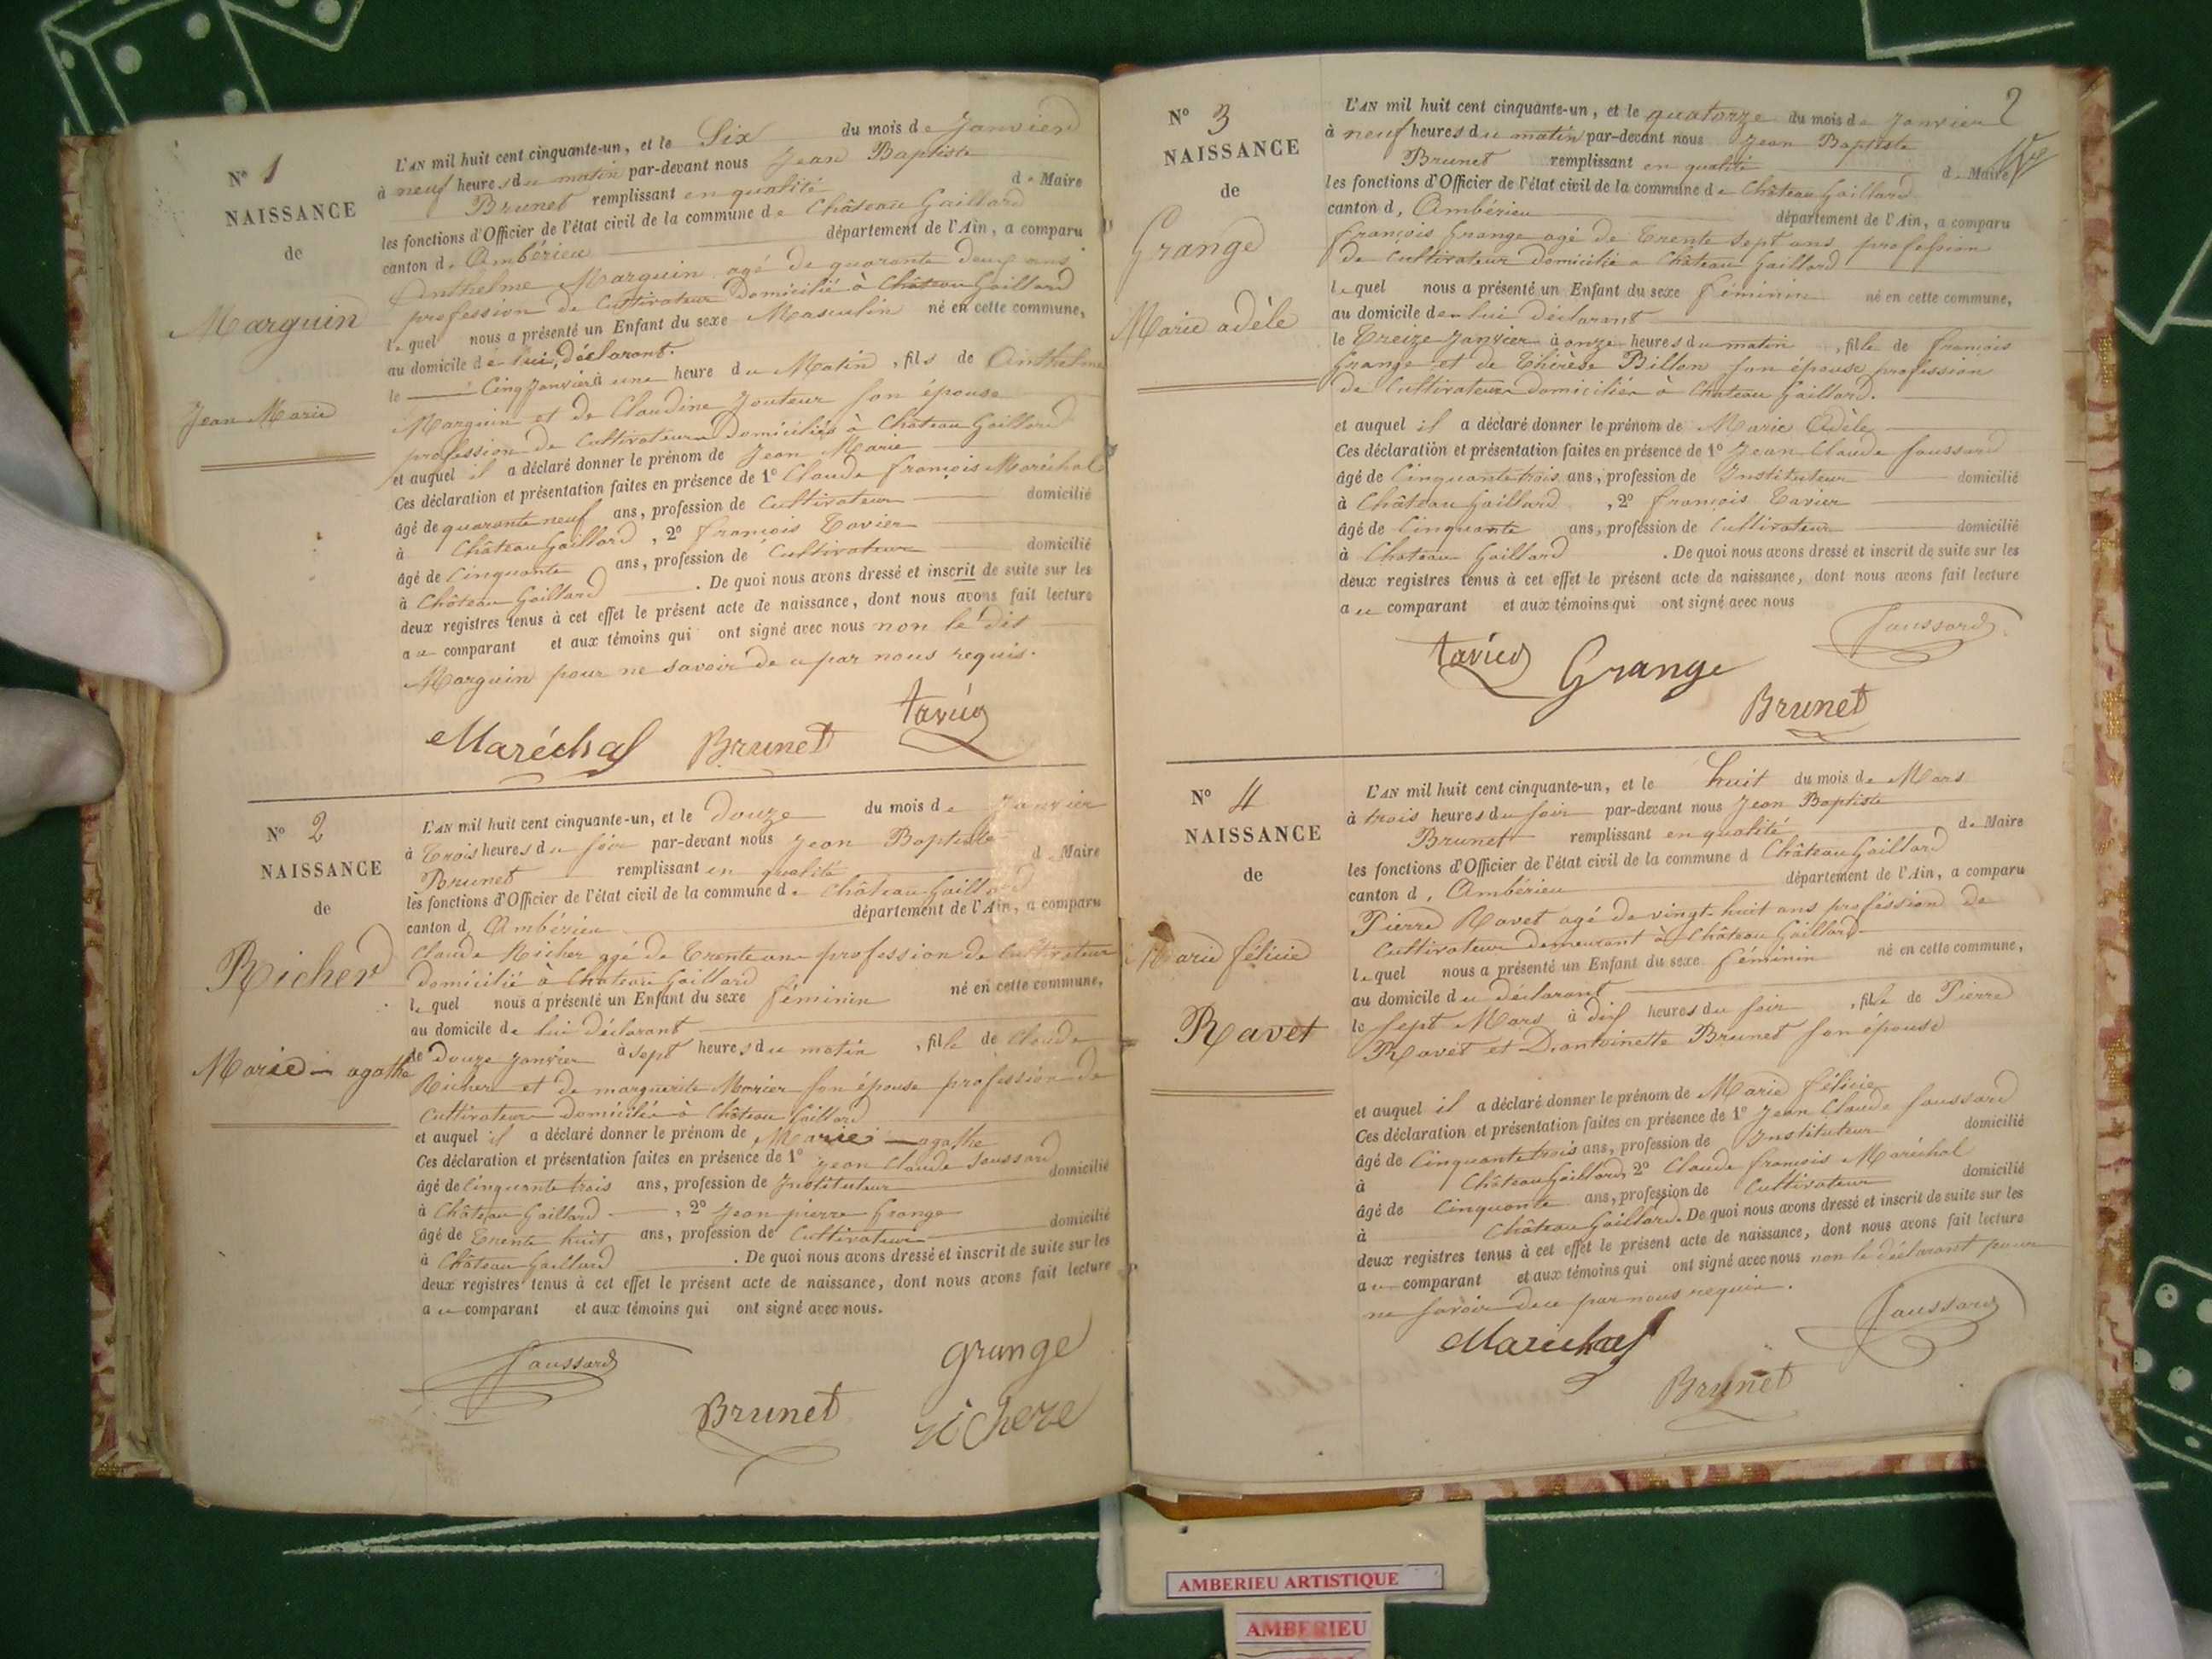 N° 1
NAISSANCE
de
Marguin
Jean Marie
L'AN mil huit cent cinquante-un, et le Six du mois de Janvier
à neuf heures du matin par-devant nous Jean Baptiste
Brunet remplissant en qualité de Maire
les fonctions d'Officier de l'état civil de la commune de Château Gaillard
canton d. Ambérieu département de l'Ain, a comparu
Anthelme Marguin agé de quarante deux ans
profession de Cultivateur Domicilié à Château Gaillard
lequel nous a présenté un Enfant du sexe Masculin né en cette commune,
au domicile de lui, déclarant.
le Cinq Janvier à une heure du Matin, fils de Anthelme
Marguin et de Claudine Jouteur son épouse
profession de Cultivateurs Domiciliés à Château Gaillard
et auquel il a déclaré donner le prénom de Jean Marie
Ces déclaration et présentation faites en présence de 1° Claude françois Maréchal
âgé de quarante neuf ans, profession de Cultivateur domicilié
à Château Gaillard, 2° françois Tavier
âgé de Cinquante ans, profession de Cultivateur domicilié
à Château Gaillard. De quoi nous avons dressé et inscrit de suite sur les
deux registres tenus à cet effet le présent acte de naissance, dont nous avons fait lecture
au comparant et aux témoins qui ont signé avec nous non le dit
Marguin pour ne savoir de ce par nous requis.
Maréchal Brunet tavier
N° 2
NAISSANCE
de
Richer
Marie agathe
L'AN mil huit cent cinquante-un, et le Douze du mois de Janvier
à Trois heures du soir par-devant nous Jean Baptiste
Brunet remplissant en qualité d. Maire
les fonctions d'Officier de l'état civil de la commune de Château Gaillard
canton d. Ambérieu département de l'Ain, a comparu
Claude Richer agé de Trente ans profession de Cultivateur
domicilié à Château Gaillard
lequel nous a présenté un Enfant du sexe féminin né en cette commune,
au domicile de lui Déclarant
le Douze Janvier à sept heures du matin, fille de Claude
Richer et de marguerite Morier son épouse profession de
Cultivateurs domiciliés à Château Gaillard
et auquel il a déclaré donner le prénom de Marie agathe
Ces déclaration et présentation faites en présence de 1° Jean Claude Joussard
âgé de Cinquante trois ans, profession de Instituteur domicilié
à Château Gaillard, 2° Jean pierre Grange
âgé de Trente huit ans, profession de Cultivateur domicilié
à Château Gaillard. De quoi nous avons dressé et inscrit de suite sur les
deux registres tenus à cet effet le présent acte de naissance, dont nous avons fait lecture
au comparant et aux témoins qui ont signé avec nous.
Grange
Brunet richere
2
N° 3
NAISSANCE
de
Grange
Marie adèle
L'AN mil huit cent cinquante-un, et le quatorze du mois de Janvier
à neuf heures du matin par-devant nous Jean Baptiste
Brunet remplissant en qualité d. Maire
les fonctions d'Officier de l'état civil de la commune de Château Gaillard
canton d. Ambérieu département de l'Ain, a comparu
françois Grange agé de Trente sept ans, profession
de Cultivateur domicilié a Château Gaillard
lequel nous a présenté un Enfant du sexe féminin né en cette commune,
au domicile de lui déclarant
le Treize Janvier à onze heures du matin, fille de françois
Grange et de Thérèse Billon son épouse profession
de Cultivateurs domiciliés à Château Gaillard.
et auquel il a déclaré donner le prénom de Marie Adèle
Ces déclaration et présentation faites en présence de 1° Jean Claude Joussard
âgé de Cinquante trois ans, profession de Instituteur domicilié
à Château Gaillard, 2° françois Tavier
âgé de Cinquante ans, profession de Cultivateur domicilié
à Château Gaillard. De quoi nous avons dressé et inscrit de suite sur les
deux registres tenus à cet effet le présent acte de naissance, dont nous avons fait lecture
au comparant et aux témoins qui ont signé avec nous
tavier Grange
Brunet
N° 4
NAISSANCE
de
Marie félicie
Ravet
L'AN mil huit cent cinquante-un, et le huit du mois de Mars
à trois heures du soir par-devant nous Jean Baptiste
Brunet remplissant en qualité d. Maire
les fonctions d'Officier de l'état civil de la commune d Château Gaillard
canton d. Ambérieu département de l'Ain, a comparu
Pierre Ravet agé de vingt-huit ans proféssion de
Cultivateur demeurant à Château Gaillard
lequel nous a présenté un Enfant du sexe féminin né en cette commune,
au domicile du déclarant
le sept Mars à dix heures du soir, fille de Pierre
Ravet et D'antoinette Brunet son épouse
et auquel il a déclaré donner le prénom de Marie félicie
Ces déclaration et présentation faites en présence de 1° Jean Claude Joussard
âgé de Cinquante trois ans, profession de Instituteur domicilié
à Château Gaillard, 2° Claude françois Maréchal
âgé de Cinquante ans, profession de Cultivateur domicilié
à Château Gaillard. De quoi nous avons dressé et inscrit de suite sur les
deux registres tenus à cet effet le présent acte de naissance, dont nous avons fait lecture
au comparant et aux témoins qui ont signé avec nous non le déclarant pour
ne savoir de ce par nous requis.
Maréchal
Brunet
AMBERIEU ARTISTIQUE
AMBERIEU